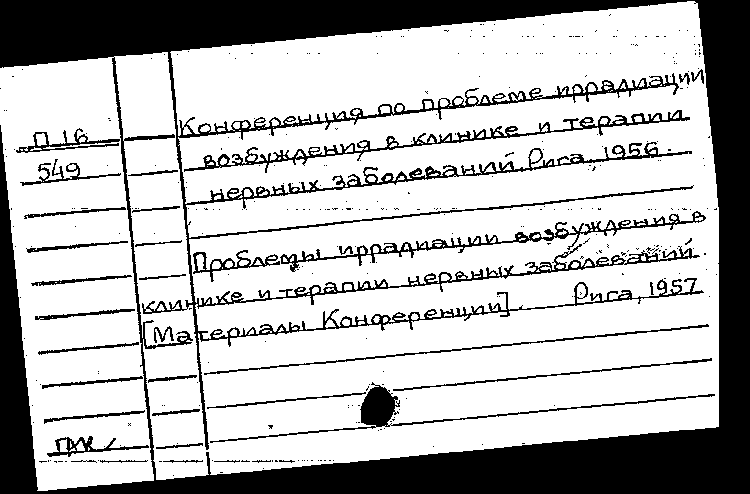 П 16
549
Конференция по проблеме иррадиации
возбуждения в клинике и терапии
нервных заболеваний. Рига, 1956.
Проблемы иррадиации возбуждения в
клинике и терапии нервных заболеваний.
[Материалы Конференции]. Рига, 1957